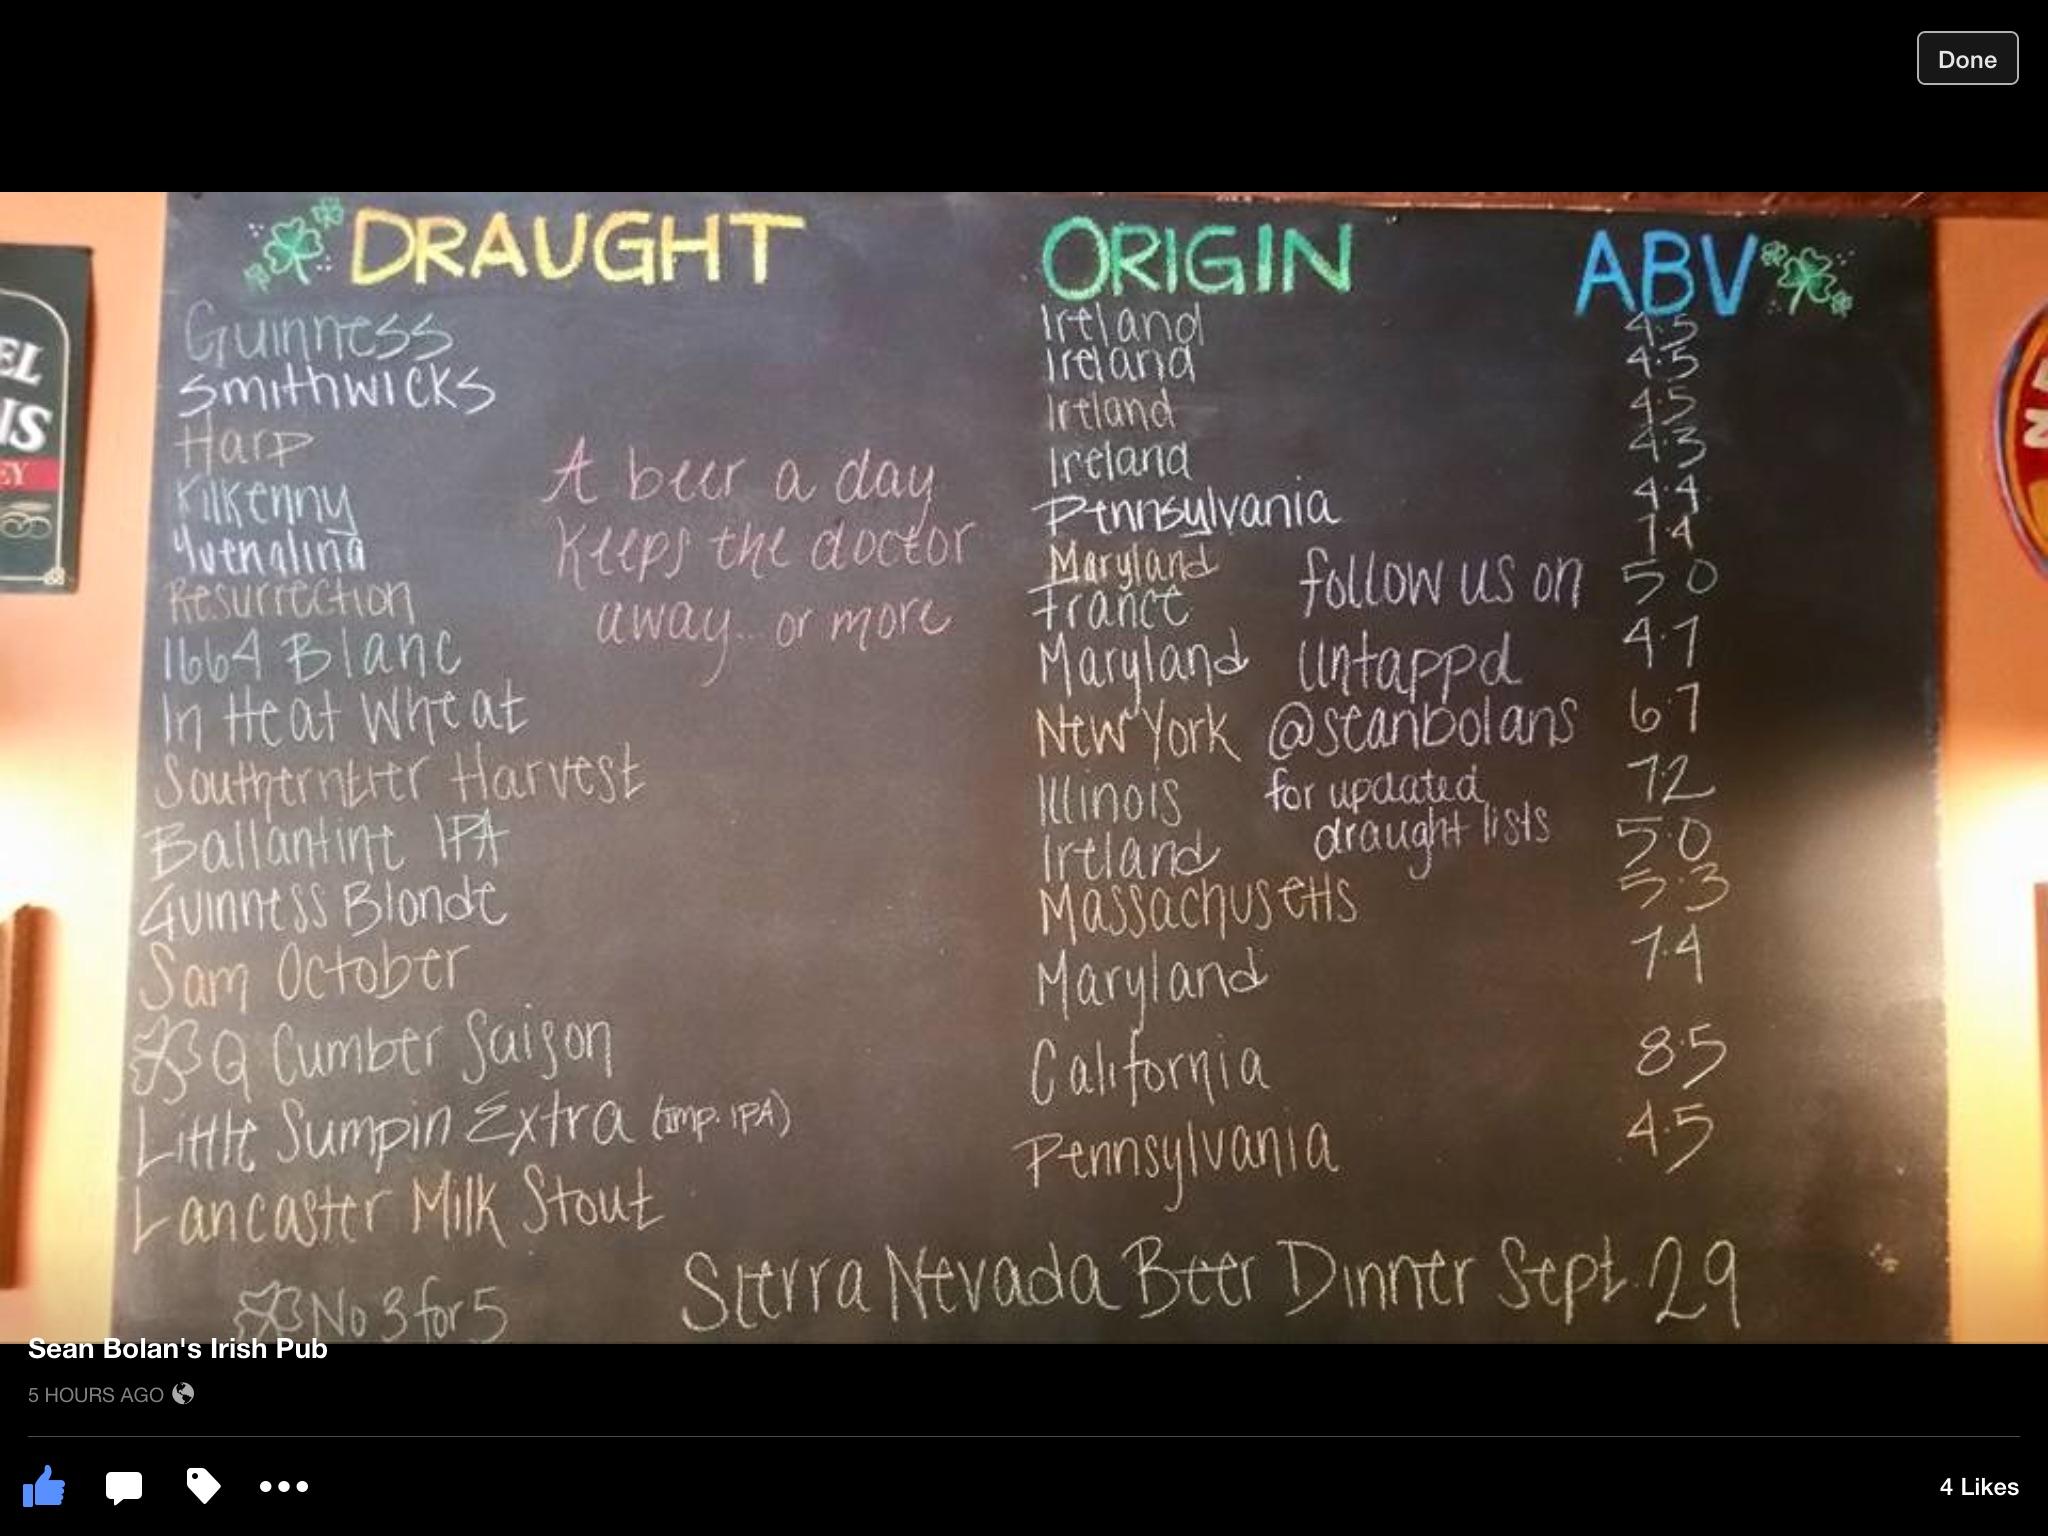 Done
DRAUGHT ORIGIN ABV
Guinness Ireland 4.5
Smithwicks Ireland 4.5
Harp Ireland 4.5
Kilkenny Ireland 4.3
Yuengling Pennsylvania 4.4
Resurrection Maryland 7.4
1664 Blanc France 5.0
In Heat Wheat Maryland 4.7
Southerntier Harvest New York 6.7
Ballantine IPA Illinois 7.2
Guinness Blonde Ireland 5.0
Sam October Massachusetts 5.3
Q Cumber Saison Maryland 7.4
Little Sumpin Extra (Imp. IPA) California 8.5
Lancaster Milk Stout Pennsylvania 4.5
A beer a day
Keeps the doctor
away... or more
follow us on
Untappd
@seanbolans
for updated
draught lists
No 3 for 5
Sierra Nevada Beer Dinner Sept. 29
EL
NS
EY
Sean Bolan's Irish Pub
5 HOURS AGO
4 Likes